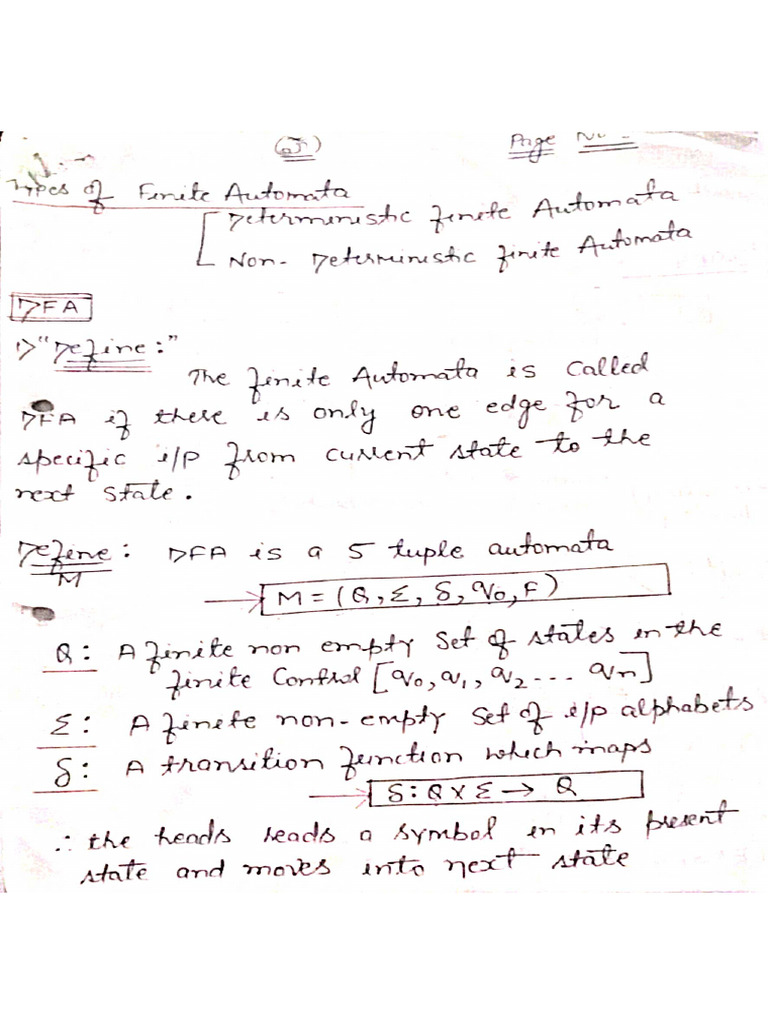 Page No -
Types of Finite Automata
Deterministic finite Automata
Non- Deterministic finite Automata
DFA
1) "Define:"
The finite Automata is called
DFA if there is only one edge for a
specific i/p from current state to the
next state.
Define: DFA is a 5 tuple automata
M
M = (Q, Σ, δ, q0, F)
Q: A finite non empty Set of states in the
finite Control [q0, q1, q2 ... qn]
Σ: A finite non-empty Set of i/p alphabets
δ: A transition function which maps
δ: Q X Σ → Q
∴ the heads reads a symbol in its present
state and moves into next state